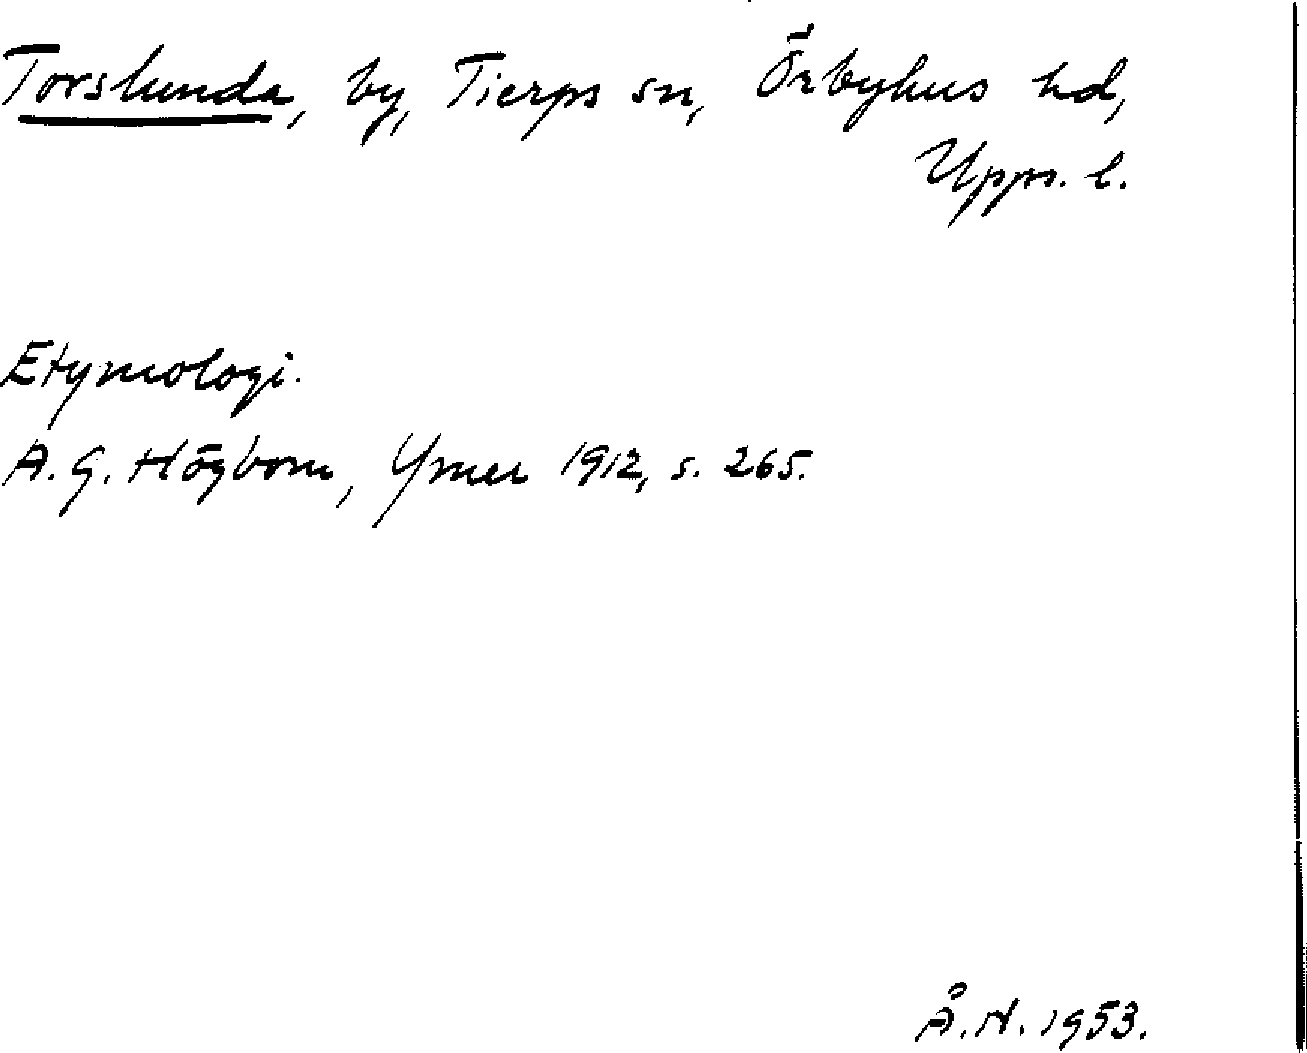 Torslunda, by, Tierps sn, Örbyhus hd,
Upps. l.
Etymologi.
A. G. Högbom, Ymer 1912, s. 265.
Å. N. 1953.